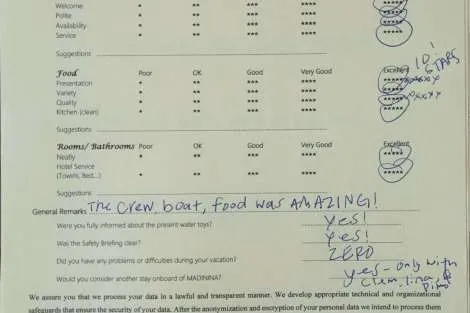 Welcome * ** *** **** *****
Polite * ** *** **** *****
Availability * ** *** **** *****
Service * ** *** **** *****
Suggestions
10!
STARS
Food Poor OK Good Very Good Excellent
Presentation * ** *** **** *****
Variety * ** *** **** *****
Quality * ** *** **** *****
Kitchen (clean) * ** *** **** *****
Suggestions
Rooms/ Bathrooms Poor OK Good Very Good Excellent
Neatly * ** *** **** *****
Hotel Service
(Towels, Bed...) * ** *** **** *****
Suggestions
General Remarks The crew, boat, food was AMAZING!
Were you fully informed about the present water toys? yes!
Was the Safety Briefing clear? yes!
Did you have any problems or difficulties during your vacation? ZERO
Would you consider another stay onboard of MADININA? yes - only with
We assure you that we process your data in a lawful and transparent manner. We develop appropriate technical and organizational
safeguards that ensure the security of your data. After the anonymization and encryption of your personal data we intend to process them